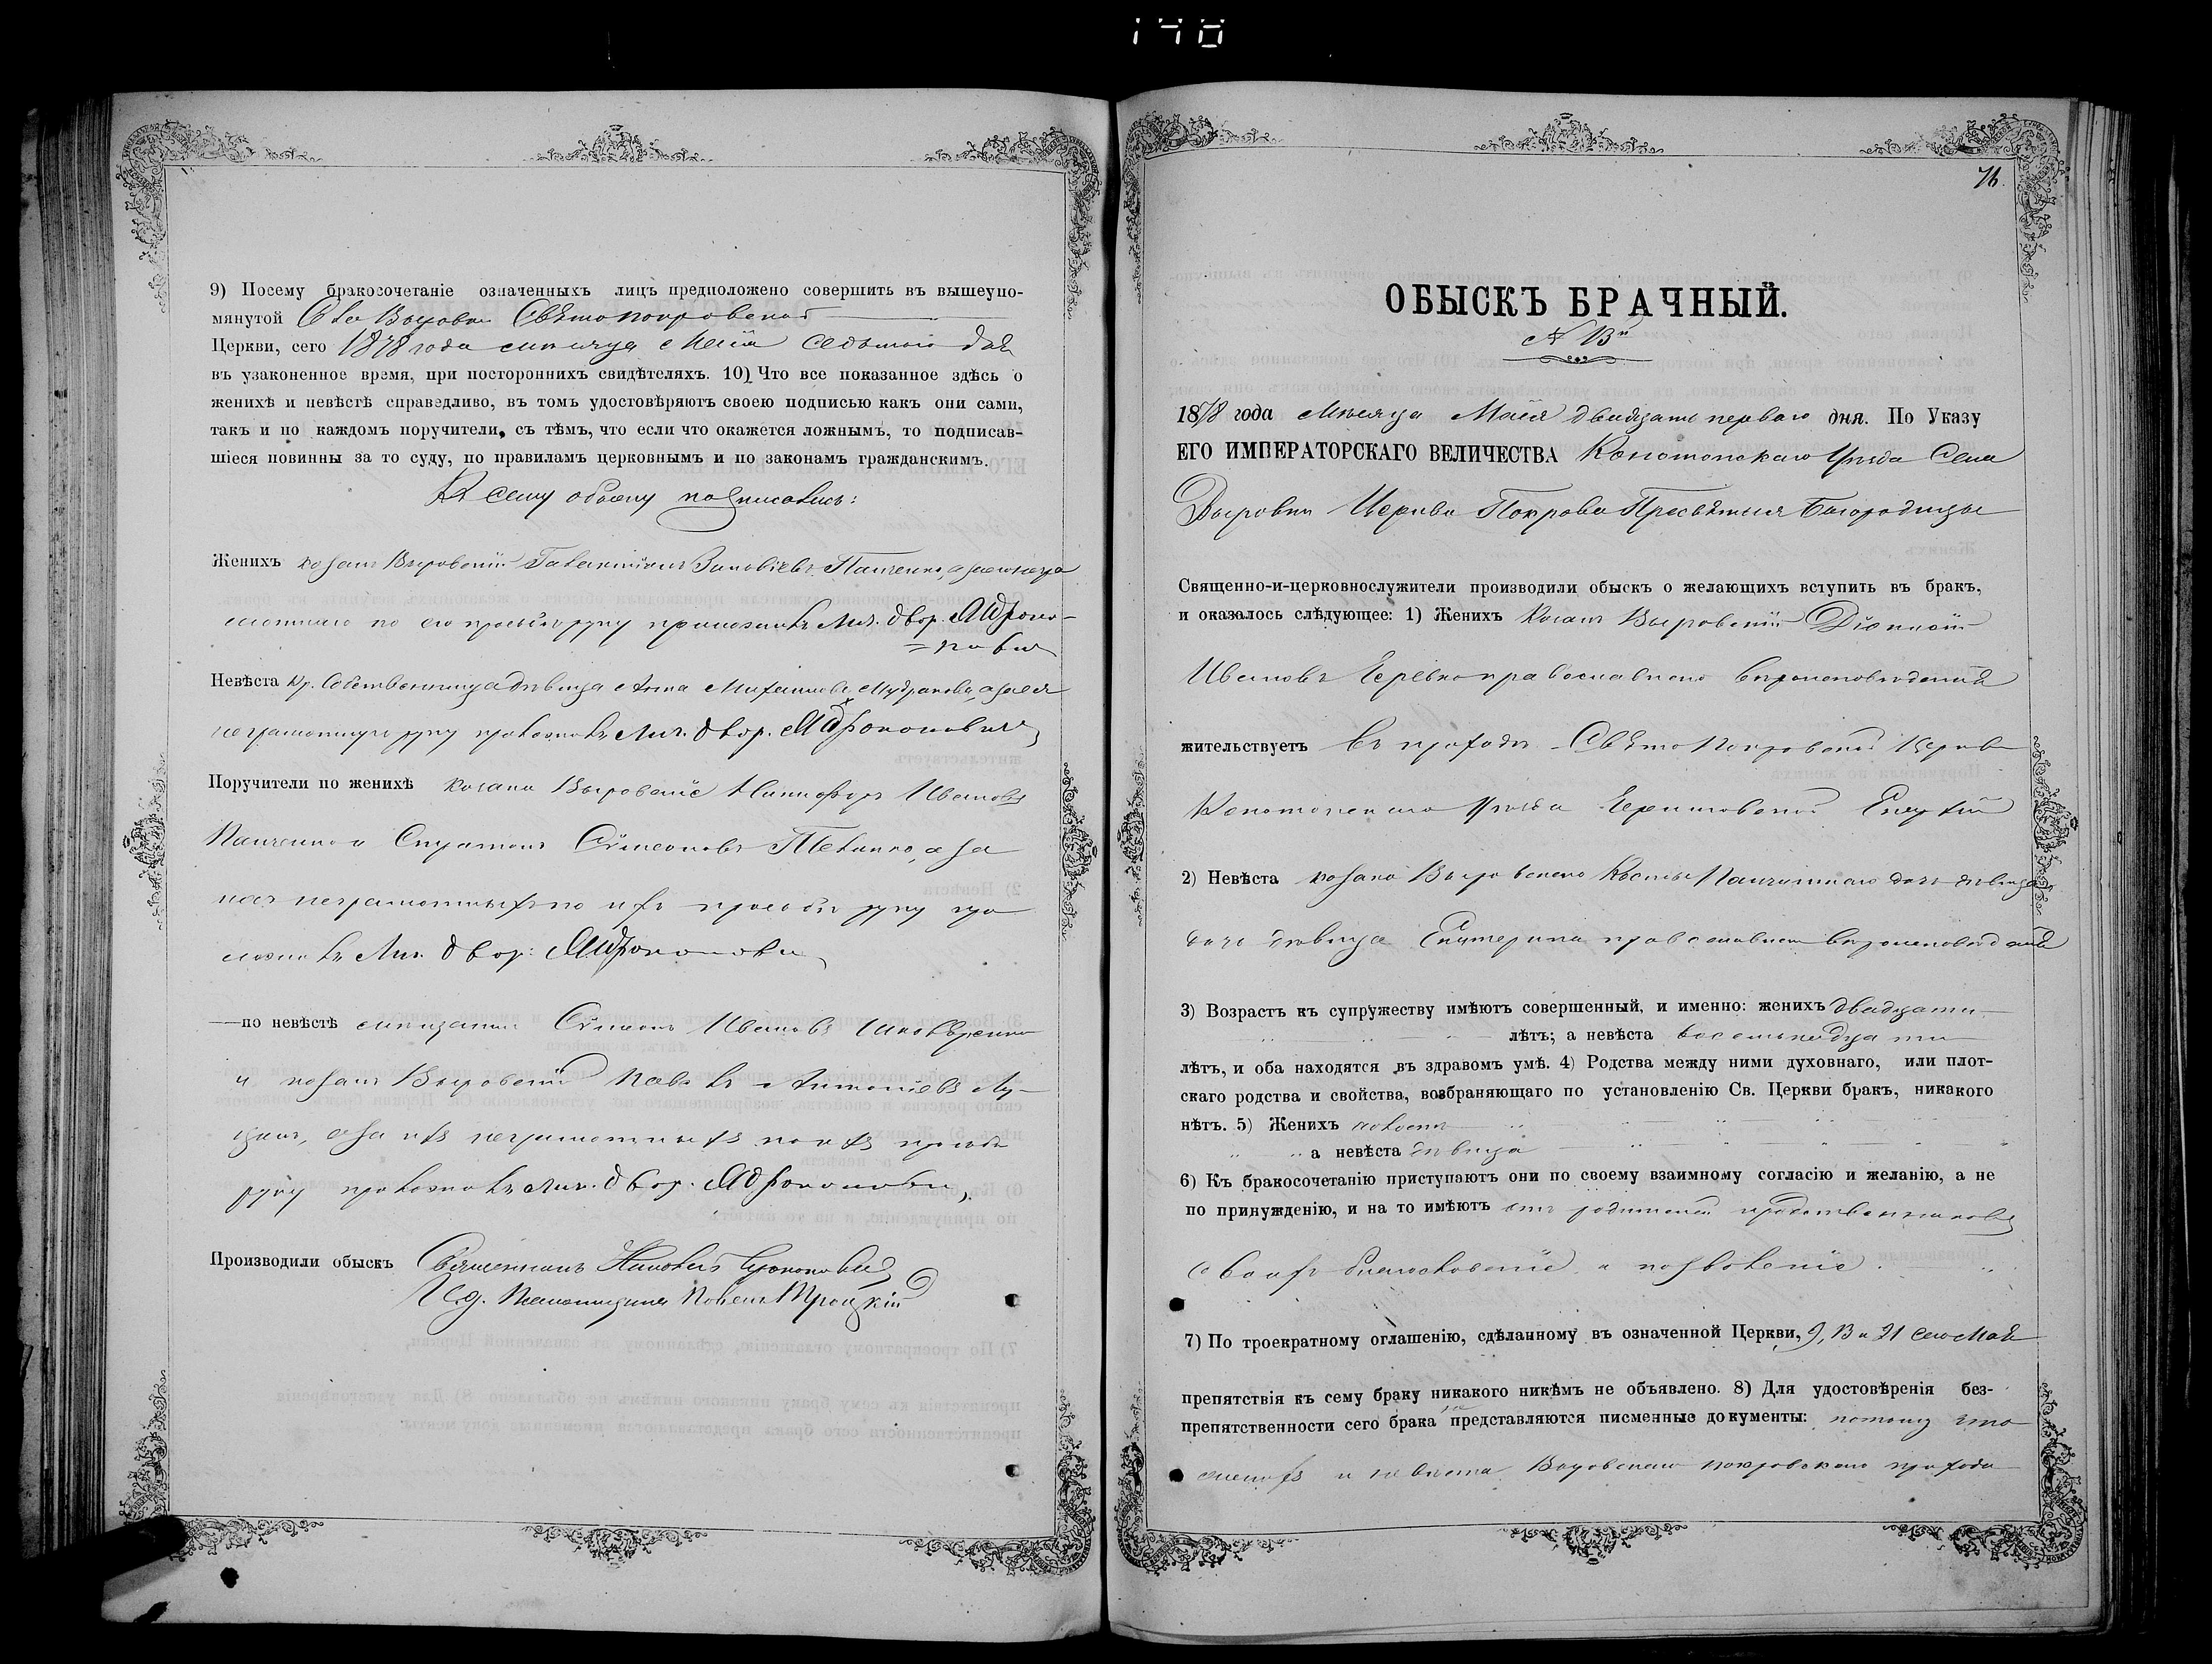 148
9) Посему бракосочетаніе означенныхъ лицъ предположено совершить въ вышеупо-
мянутой Села Выровки Свѣтопокровской
Церкви, сего 1878 года мѣсяца Маія седьмаго дня
въ узаконенное время, при постороннихъ свидѣтеляхъ. 10) Что все показанное здѣсь о
женихѣ и невѣстѣ справедливо, въ томъ удостовѣряютъ своею подписью какъ они сами,
такъ и по каждомъ поручители, съ тѣмъ, что если что окажется ложнымъ, то подписав-
шіеся повинны за то суду, по правиламъ церковнымъ и по законамъ гражданскимъ.
К сему обыску подписались:
Женихъ козакъ Выровскій Зиновіевъ Панченко, а за
по его просьбѣ руку приложилъ Лич. двор.
Невѣста кр. Собственница дѣвица Анна Михайлова а за ея
неграмотную руку приложилъ Лич. двор.
Поручители по женихѣ козаки Выровскіе Никифоръ Ивановъ
Панченко и Симеоновъ а за
нихъ неграмотныхъ по ихъ просьбѣ руку при
ложилъ Лич. двор.
—по невѣстѣ Симеонъ Ивановъ
и козакъ Выровскій Павелъ Антоніевъ Лу-
а за ихъ неграмотныхъ по ихъ просьбѣ
руку приложилъ Лич. двор.
Производили обыскъ Священникъ
И.д. Псаломщика Троцкій
76.
ОБЫСКЪ БРАЧНЫЙ.
№ 13й
1878 года Мѣсяца Маія двадцать перваго дня. По Указу
ЕГО ИМПЕРАТОРСКАГО ВЕЛИЧЕСТВА Конотопскаго Уѣзда Села
Выровки Церкви Покрова Пресвятыя Богородицы
Священно-и-церковнослужители производили обыскъ о желающихъ вступить въ бракъ,
и оказалось слѣдующее: 1) Женихъ Козакъ Выровскій
Ивановъ православнаго вѣроисповѣданія
жительствуетъ въ приходѣ Свѣто Покровской Церкви
Конотопскаго Уѣзда Черниговской Епархіи
2) Невѣста козака Выровскаго дочь дѣвица
дочь дѣвица Екатерина православнаго вѣроисповѣданія
3) Возрастъ къ супружеству имѣютъ совершенный, и именно: женихъ двадцати
лѣтъ; а невѣста восемнадцати
лѣтъ, и оба находятся въ здравомъ умѣ. 4) Родства между ними духовнаго, или плот-
скаго родства и свойства, возбраняющаго по установленію Св. Церкви бракъ, никакого
нѣтъ. 5) Женихъ холостъ
а невѣста дѣвица
6) Къ бракосочетанію приступаютъ они по своему взаимному согласію и желанію, а не
по принужденію, и на то имѣютъ отъ родителей и родственниковъ
своихъ благословеніе и позволеніе.
7) По троекратному оглашенію, сдѣланному въ означенной Церкви, 9, 13 и 21 сего Маія
препятствія къ сему браку никакого никѣмъ не объявлено. 8) Для удостовѣренія без-
препятственности сего брака не представляются писменные документы: потому что
женихъ и невѣста Выровскаго покровскаго прихода